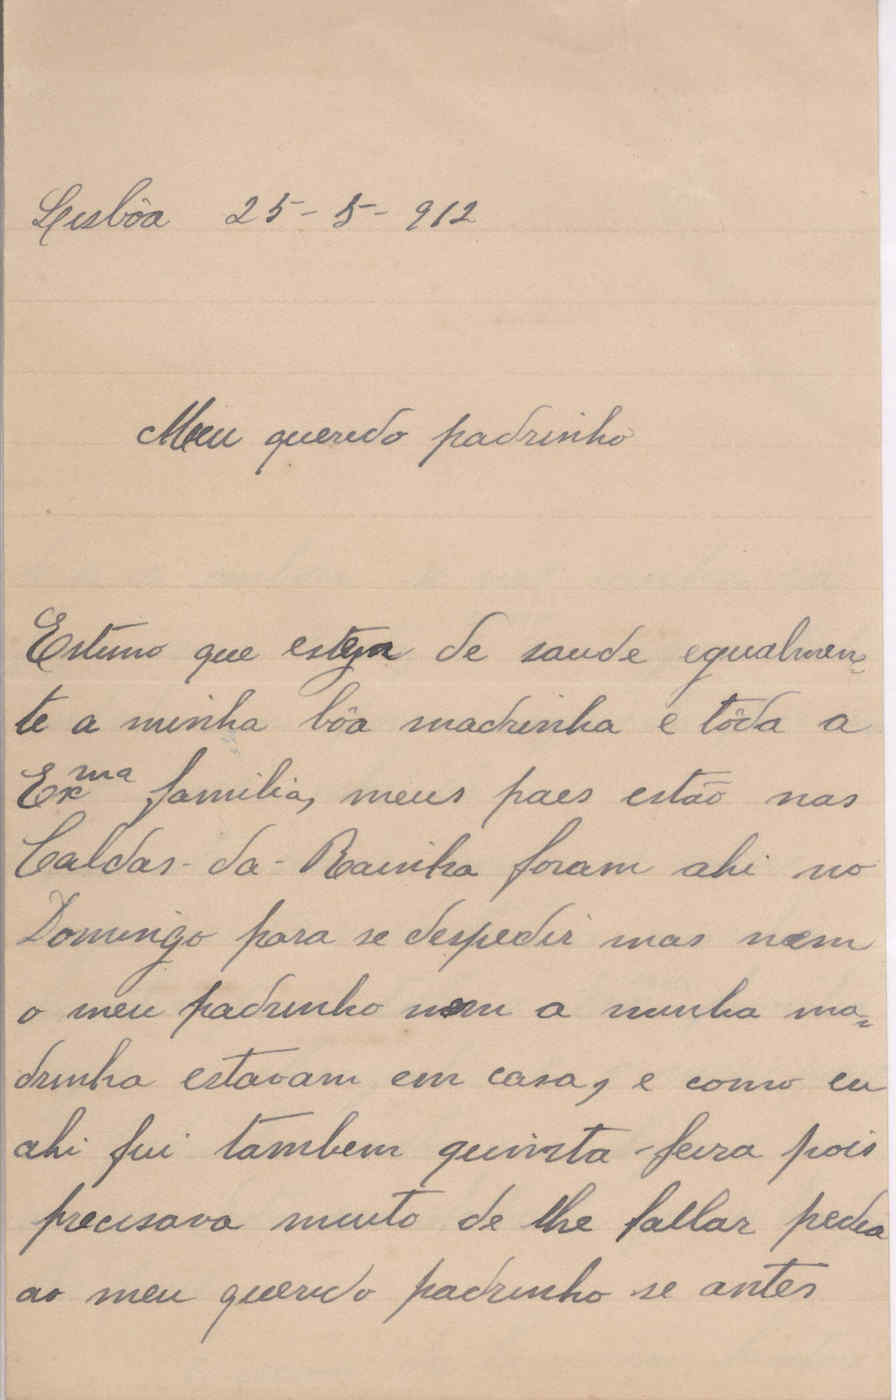 Lisbôa 25-5-912
Meu querido padrinho
Estimo que esteja de saude egualmen=
te a minha bôa madrinha e tôda a
Exma familia, meus paes estão nas
Caldas-da-Rainha foram ahi no
Domingo para se despedir mas nem
o meu padrinho nem a minha ma=
drinha estavam em casa, e como eu
ahi fui tambem quinta-feira pois
precisava muito de lhe fallar pedia
ao meu querido padrinho se antes